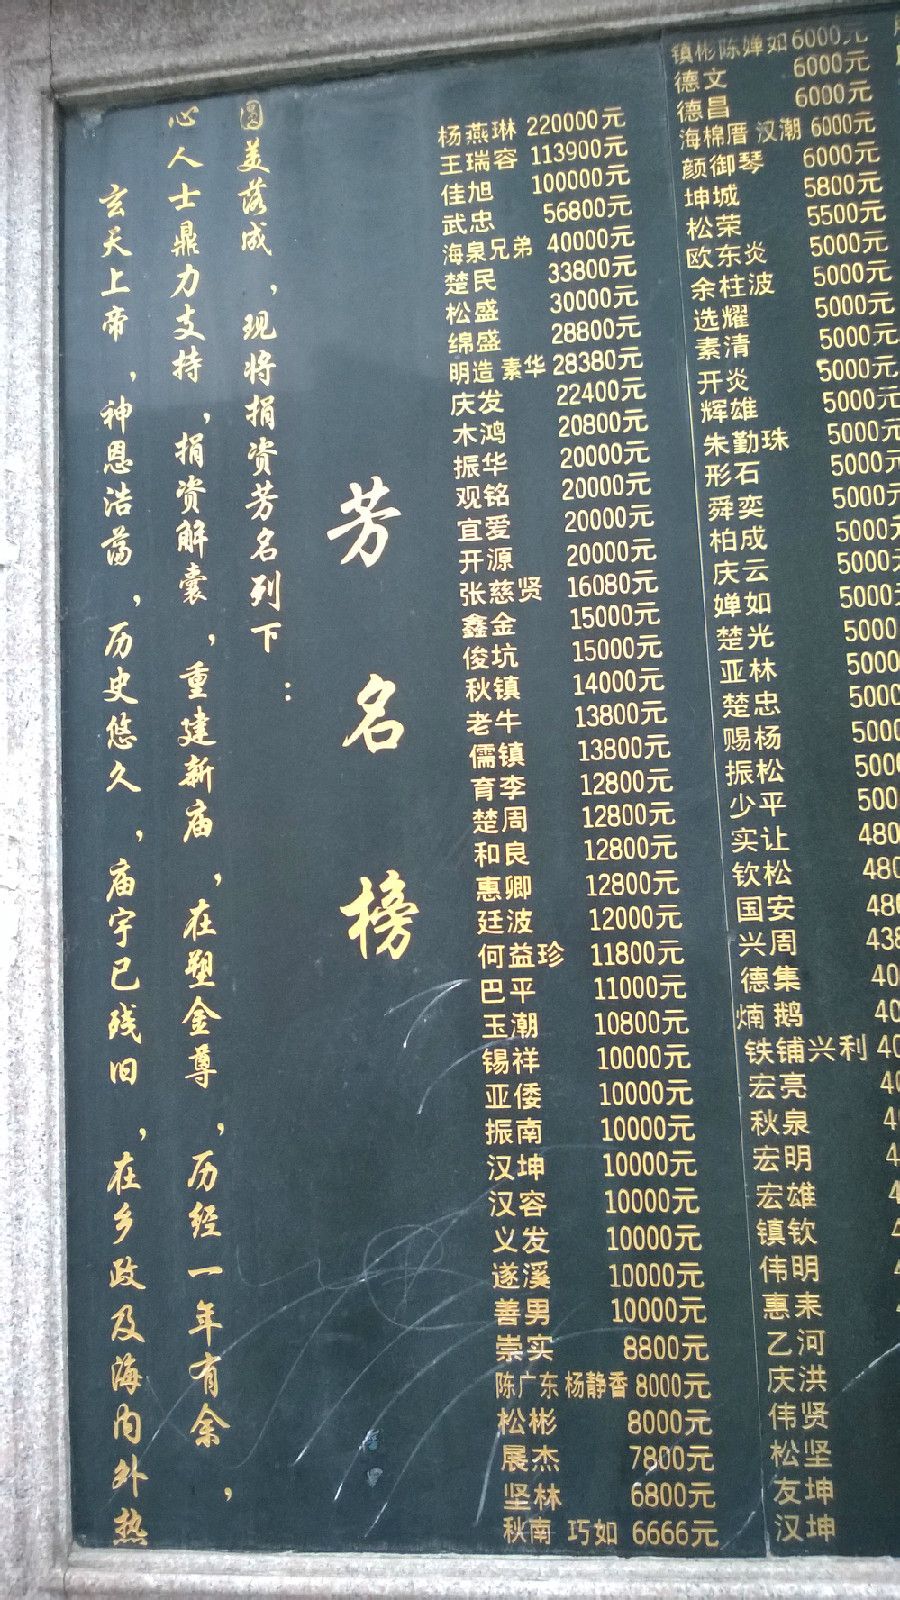 玄天上帝，神恩浩荡，历史悠久，庙宇已残旧，在乡政及海内外热
心人士鼎力支持，捐资解囊，重建新庙，在塑金尊，历经一年有余，
圆美落成，现将捐资芳名列下：
芳名榜
杨燕琳 220000元
王瑞容 113900元
佳旭 100000元
武忠 56800元
海泉兄弟 40000元
楚民 33800元
松盛 30000元
绵盛 28800元
明造 素华 28380元
庆发 22400元
木鸿 20800元
振华 20000元
观铭 20000元
宜爱 20000元
开源 20000元
张慈贤 16080元
鑫金 15000元
俊坑 15000元
秋镇 14000元
老牛 13800元
儒镇 13800元
育李 12800元
楚周 12800元
和良 12800元
惠卿 12800元
廷波 12000元
何益珍 11800元
巴平 11000元
玉潮 10800元
锡祥 10000元
亚倭 10000元
振南 10000元
汉坤 10000元
汉容 10000元
义发 10000元
遂溪 10000元
善男 10000元
崇实 8800元
陈广东 杨静香 8000元
松彬 8000元
展杰 7800元
坚林 6800元
秋南 巧如 6666元
镇彬陈婵如 6000元
德文 6000元
德昌 6000元
海棉厝 汉潮 6000元
颜御琴 6000元
坤城 5800元
松荣 5500元
欧东炎 5000元
余柱波 5000元
选耀 5000元
素清 5000元
开炎 5000元
辉雄 5000元
朱勤珠 5000元
形石 5000元
舜奕 5000元
柏成 5000元
庆云 5000元
婵如 5000元
楚光 5000
亚林 5000
楚忠 5000
赐杨 5000
振松 500
少平 500
实让 480
钦松 480
国安 480
兴周 438
德集 40
煵鹅 40
铁铺兴利 40
宏亮 40
秋泉 40
宏明 4
宏雄 4
镇钦 4
伟明
惠耒
乙河
庆洪
伟贤
松坚
友坤
汉坤